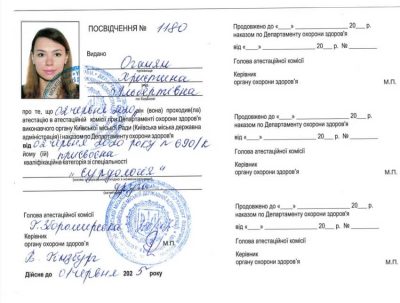 ПОСВІДЧЕННЯ № 1180
Видано Оганян
прізвище
Христина
Альбертівна
по батькові
про те, що 02 червня 2020 він (вона) проходив(ла)
атестацію в атестаційній комісії при Департаменті охорони здоров'я
виконавчого органу Київської міської Ради (Київська міська державна
адміністрація) наказом Департаменту охорони здоров'я
від 02 червня 2020 року № 690/к
йому (їй) присвоєна
кваліфікаційна категорія зі спеціальності
"сурдологія"
друга
Голова атестаційної комісії
Керівник
органу охорони здоров'я
М.П.
Дійсне до 01 червня 2025 року
Продовжено до «___» ________ 20___ р.
наказом по Департаменту охорони здоров'я
від «___» ________ 20___ р. № ____
Голова атестаційної комісії
Керівник
органу охорони здоров'я
М.П.
Продовжено до «___» ________ 20___ р.
наказом по Департаменту охорони здоров'я
від «___» ________ 20___ р. № ____
Голова атестаційної комісії
Керівник
органу охорони здоров'я
М.П.
Продовжено до «___» ________ 20___ р.
наказом по Департаменту охорони здоров'я
від «___» ________ 20___ р. № ____
Голова атестаційної комісії
Керівник
органу охорони здоров'я
М.П.